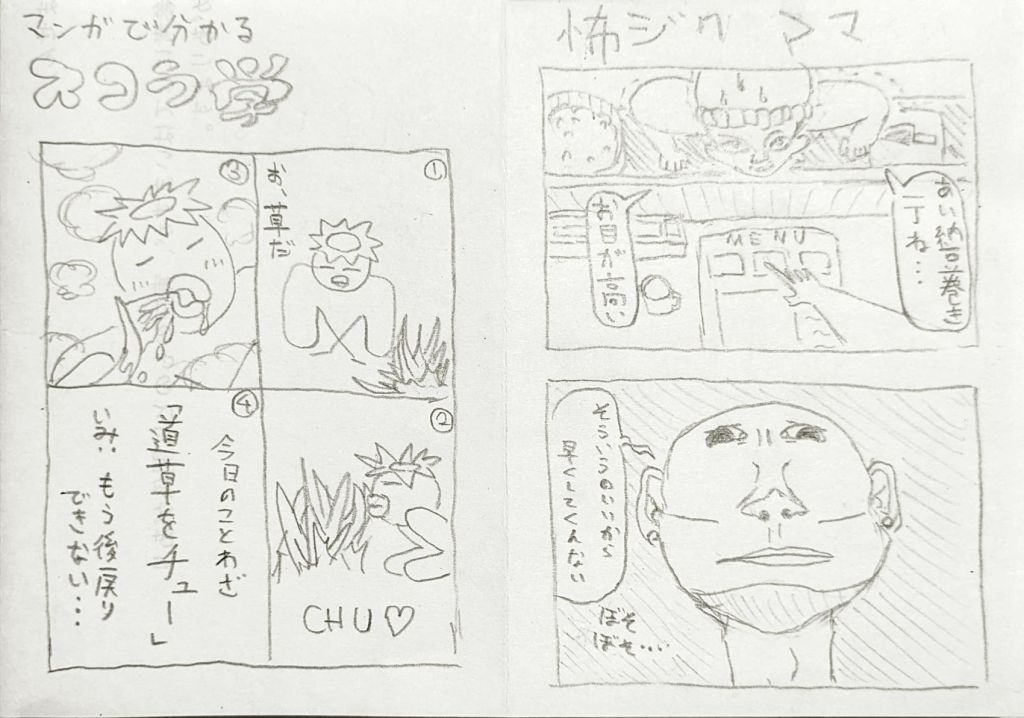 マンガで分かる
学
①
お、草だ
②
CHU♡
③
④
今日のことわざ
「道草をチュー」
いみ:もう後戻り
できない…
怖ジワ
あい納豆巻き
一丁ね…
お目が高い
MENU
そういうのいいから
早くしてくんない
ぼそ
ぼそ…